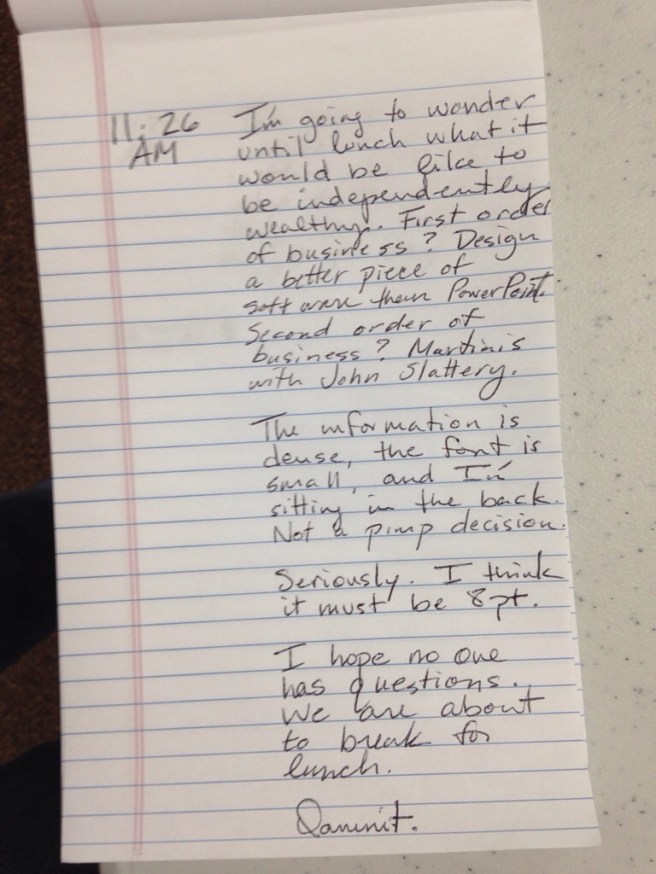 11:26 AM
I'm going to wonder
until lunch what it
would be like to
be independently
wealthy. First order
of business? Design
a better piece of
software than PowerPoint.
Second order of
business? Martinis
with John Slattery.
The information is
dense, the font is
small, and I'm
sitting in the back.
Not a pimp decision.
Seriously. I think
it must be 8pt.
I hope no one
has questions.
We are about
to break for
lunch.
Dammit.